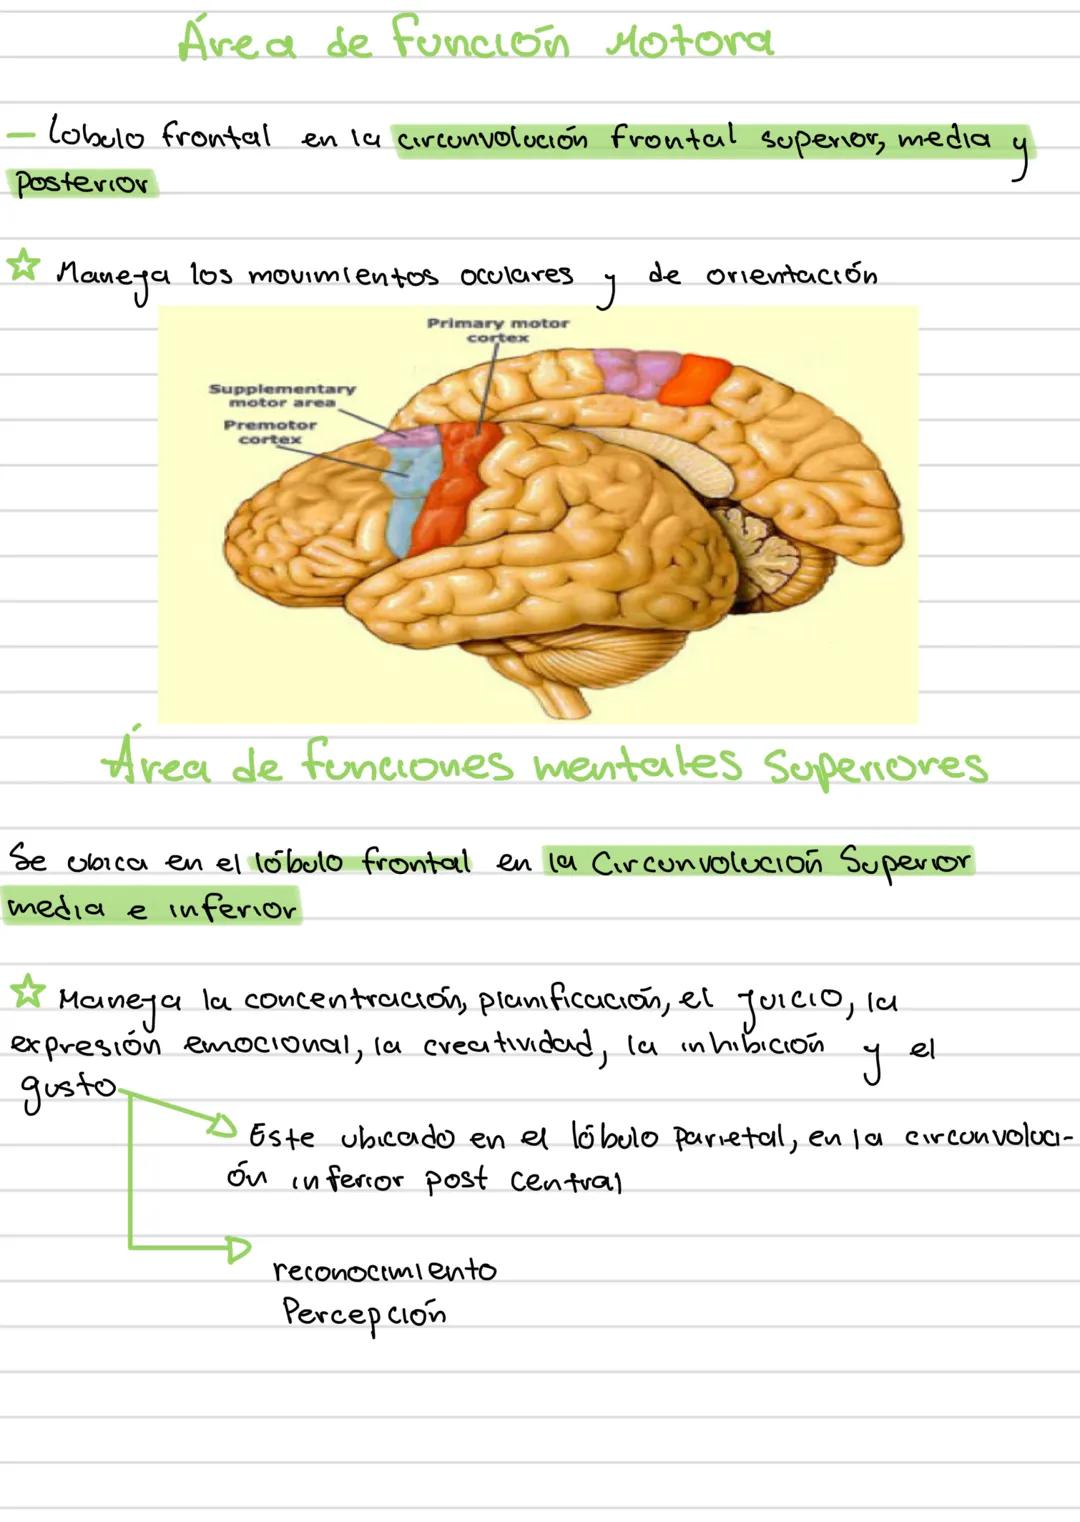 Área de función Motora
- Lobulo frontal en la circunvolución frontal superior, media y
Posterior
☆ Maneja los movimientos oculares y de orientación
Primary motor
cortex
Supplementary
motor area
Premotor
cortex
Área de funciones mentales Superiores
Se ubica en el lóbulo frontal en la Circunvolución Superior
media e inferior
☆ Maneja la concentración, planificación, el juicio, la
expresión emocional, la creatividad, la inhibición y el
gusto
Este ubicado en el lóbulo parietal, en la circunvoluci-
ón inferior post central
reconocimiento
Percepción